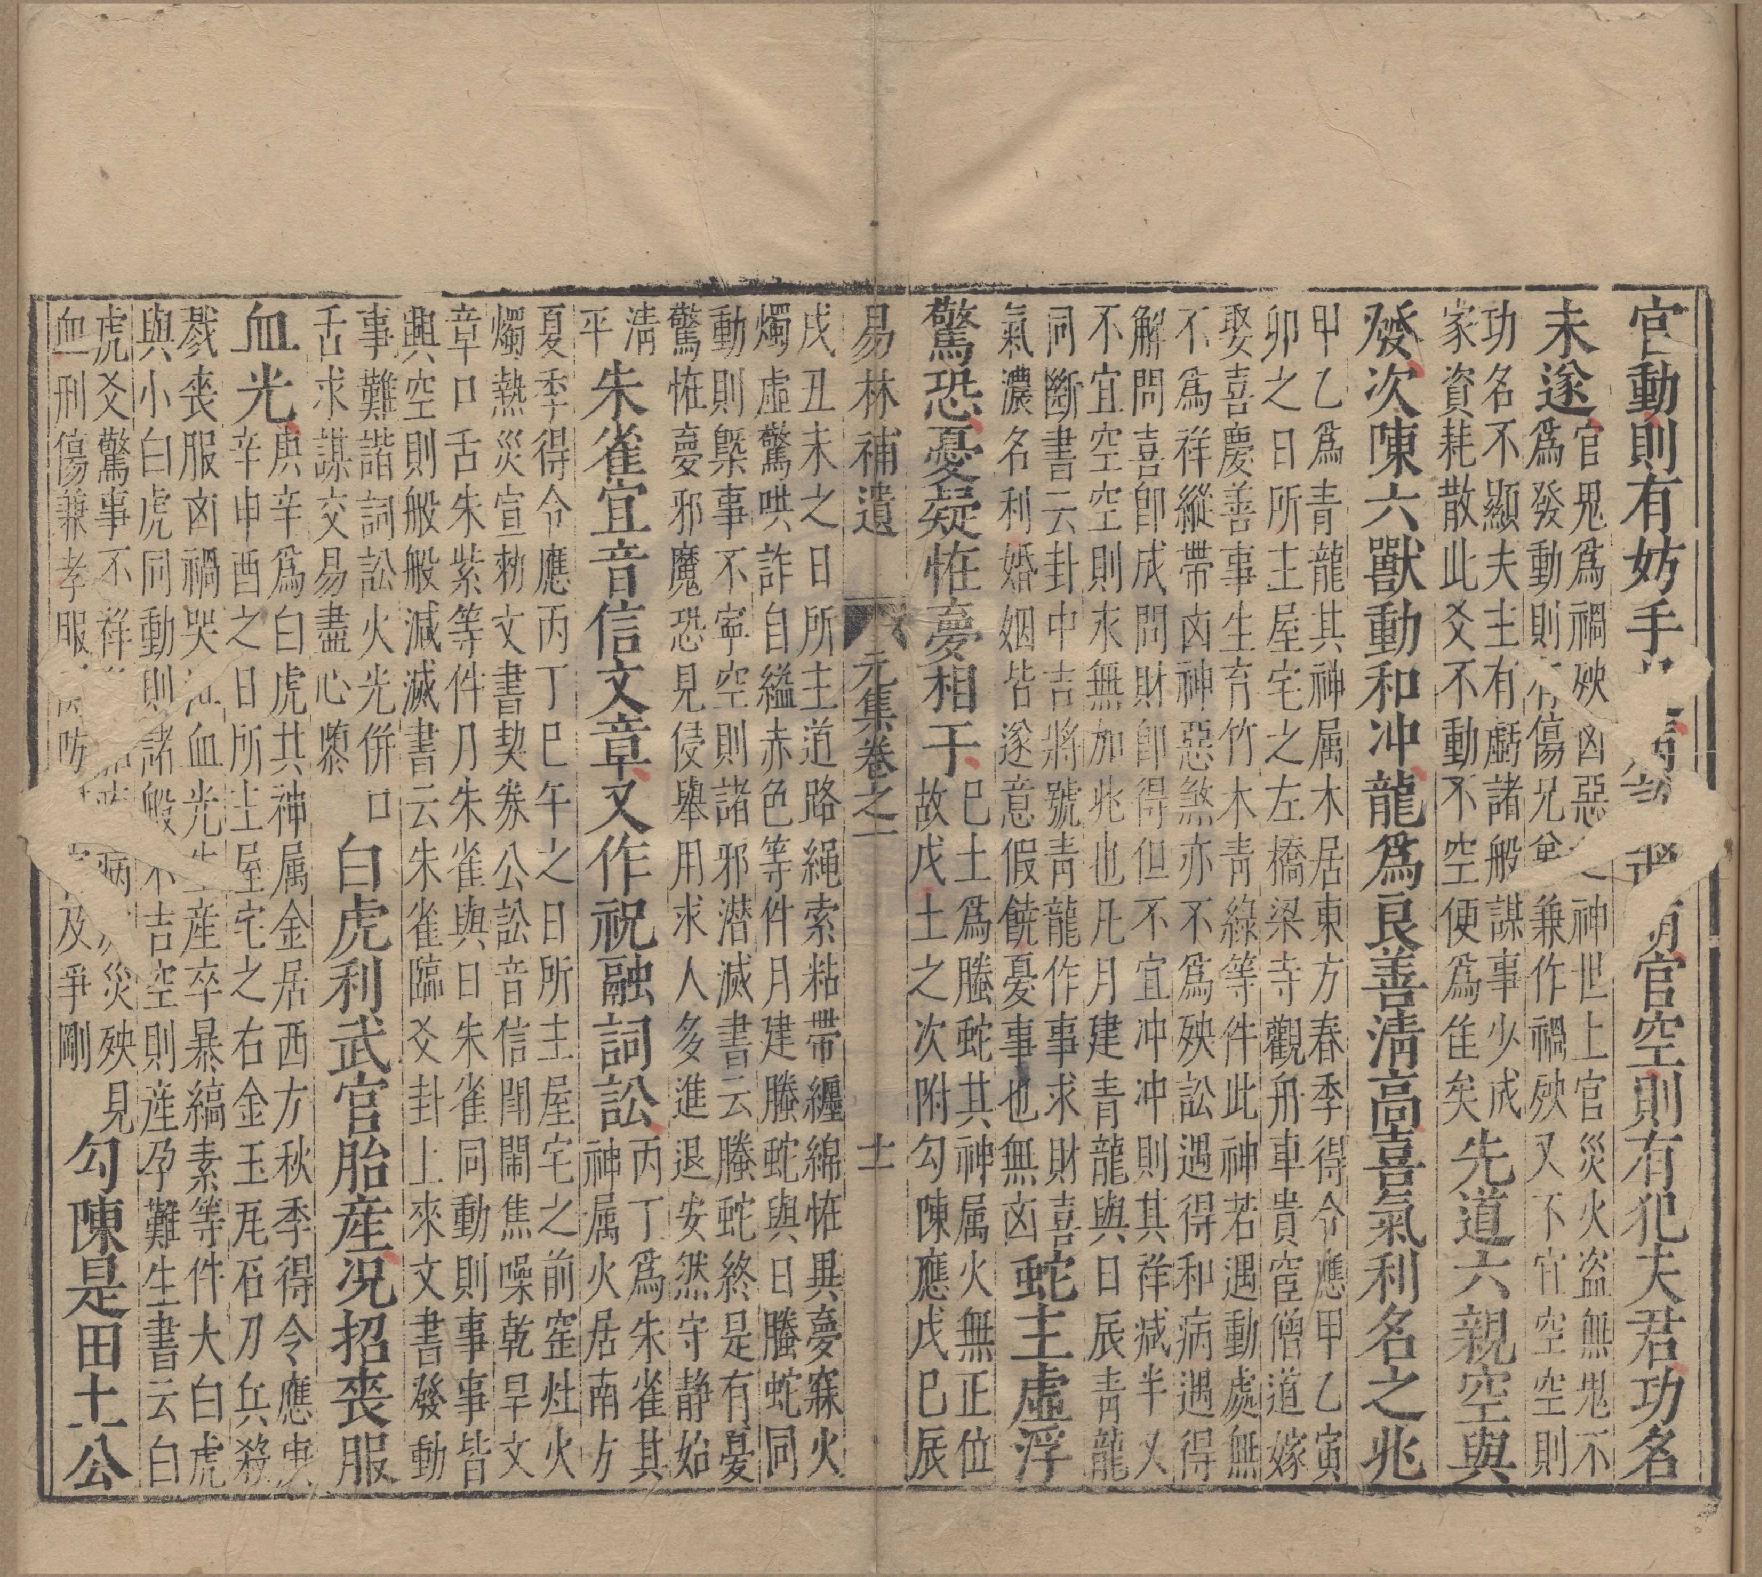 官動則有妨手空則有犯夫君功名
未遂官鬼爲禍殃凶惡神世上官災火盜無鬼不
爲發動則傷兄兼作禍殃又不宜空空則
功名不顯夫主有虧諸般謀事少成
家資耗散此爻不動不空便爲隹矣先道六親空與
發次陳六獸動和冲龍爲良善淸高喜氣利名之兆
甲乙爲青龍其神属木居東方春季得令應甲乙寅
卯之日所主屋宅之左橋梁寺觀舟車貴宦僧道嫁
娶喜慶善事生育竹木青綠等件此神若遇動處無
不爲祥縱帶凶神惡煞亦不爲殃訟遇得和病遇得
解問喜卽成問財卽得但不宜冲冲則其祥减半又
不宜空空則求無加兆也凡月建青龍與日辰靑龍
同斷書云卦中吉將號靑龍作事求財喜
氣濃名利婚姻皆遂意假饒憂事也無凶蛇主虛浮
驚恐憂疑恠夢相干巳土爲螣蛇其神属火無正位
故戊土之次附勾陳應戊巳辰
易林補遺 元集卷之一 十一
戌丑未之日所主道路繩索粘帶纏綿恠異夢寐火
燭虛驚哄詐自縊赤色等件月建螣蛇與日螣蛇同
動則槩事不寧空則諸邪潜滅書云螣蛇終是有憂
驚恠夢邪魔恐見侵舉用求人多進退安然守静始
淸
平朱雀宜音信文章又作祝融詞訟丙丁爲朱雀其
神属火居南方
夏季得令應丙丁巳午之日所主屋宅之前窰灶火
燭熱災宣勑文書契劵公訟音信閙鬧焦噪乾旱文
章口舌朱紫等件月朱雀與日朱雀同動則事事皆
興空則般般減滅書云朱雀臨爻卦上來文書發動
事難諧詞訟火光併口
舌求謀交易盡心懷白虎利武官胎産况招喪服
血光庚辛爲白虎其神属金居西方秋季得令應庚
辛申酉之日所主屋宅之右金玉瓦石刀兵殺
戮丧服凶禍哭血光産卒暴縞素等件大白虎
與小白虎同動則諸般不吉空則産孕難生書云白
虎爻驚事不祥病災殃見
血刑傷兼孝服及爭剛勾陳是田土公